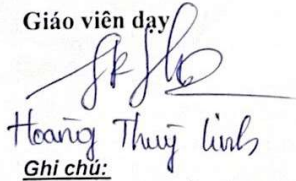 Giáo viên dạy
Hoàng Thuỳ Linh
Ghi chú: